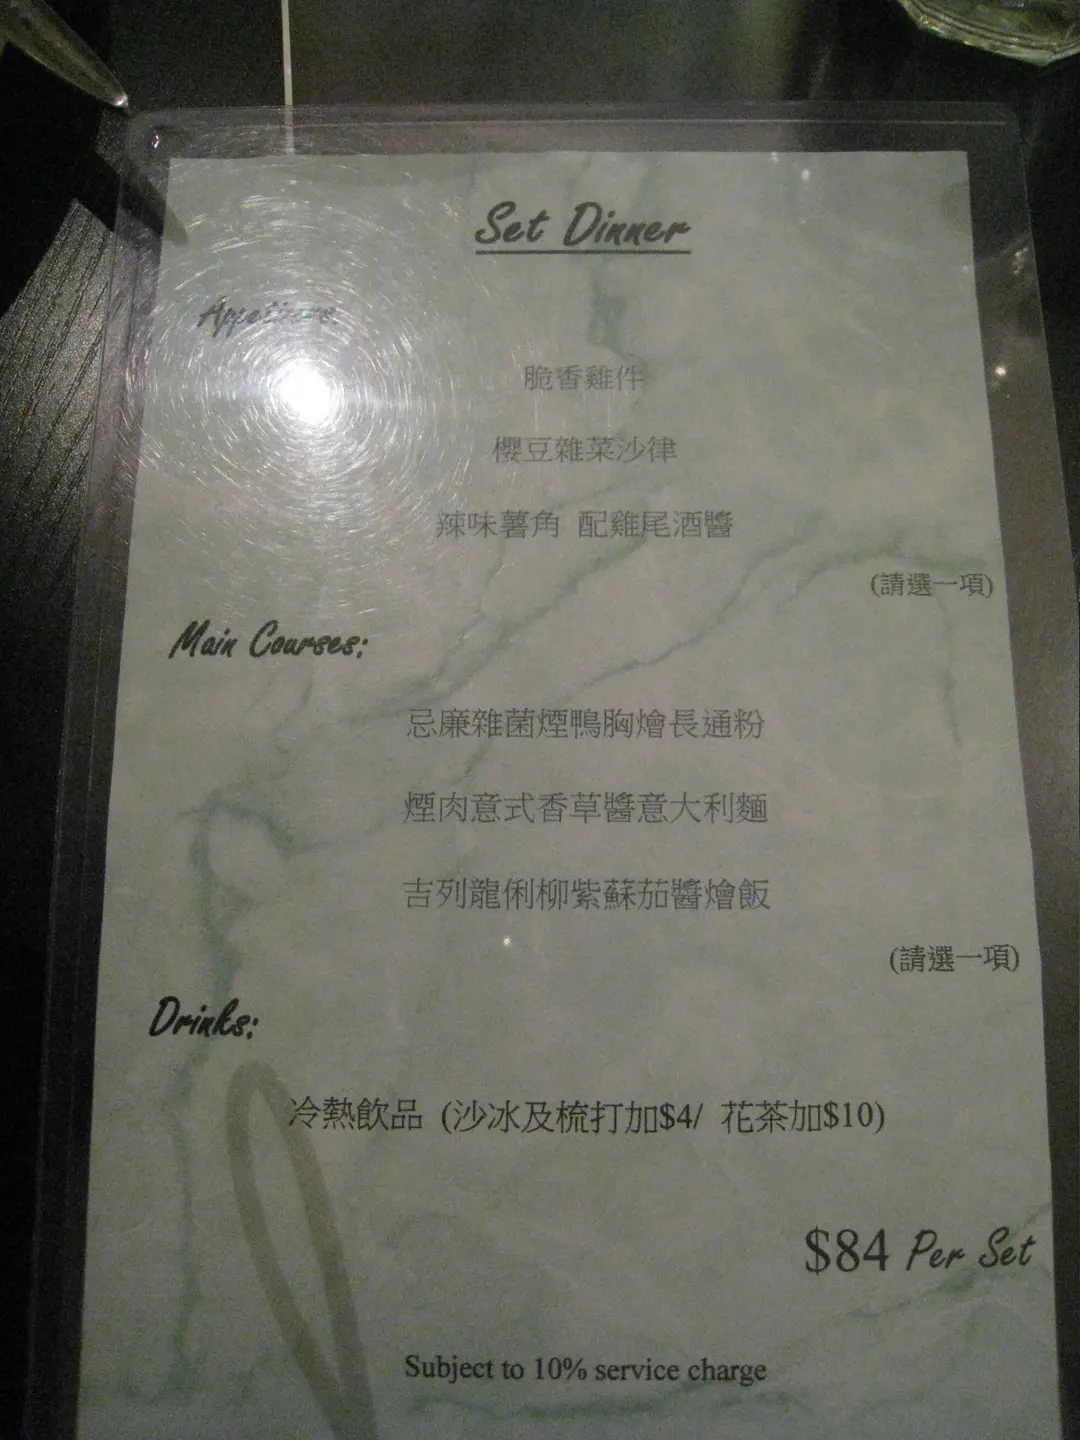 Set Dinner
Appetizers:
脆香雞件
櫻豆雜菜沙律
辣味薯角 配雞尾酒醬
(請選一項)
Main Courses:
忌廉雜菌煙鴨胸燴長通粉
煙肉意式香草醬意大利麵
吉列龍俐柳紫蘇茄醬燴飯
(請選一項)
Drinks:
冷熱飲品 (沙冰及梳打加$4/ 花茶加$10)
$84 Per Set
Subject to 10% service charge